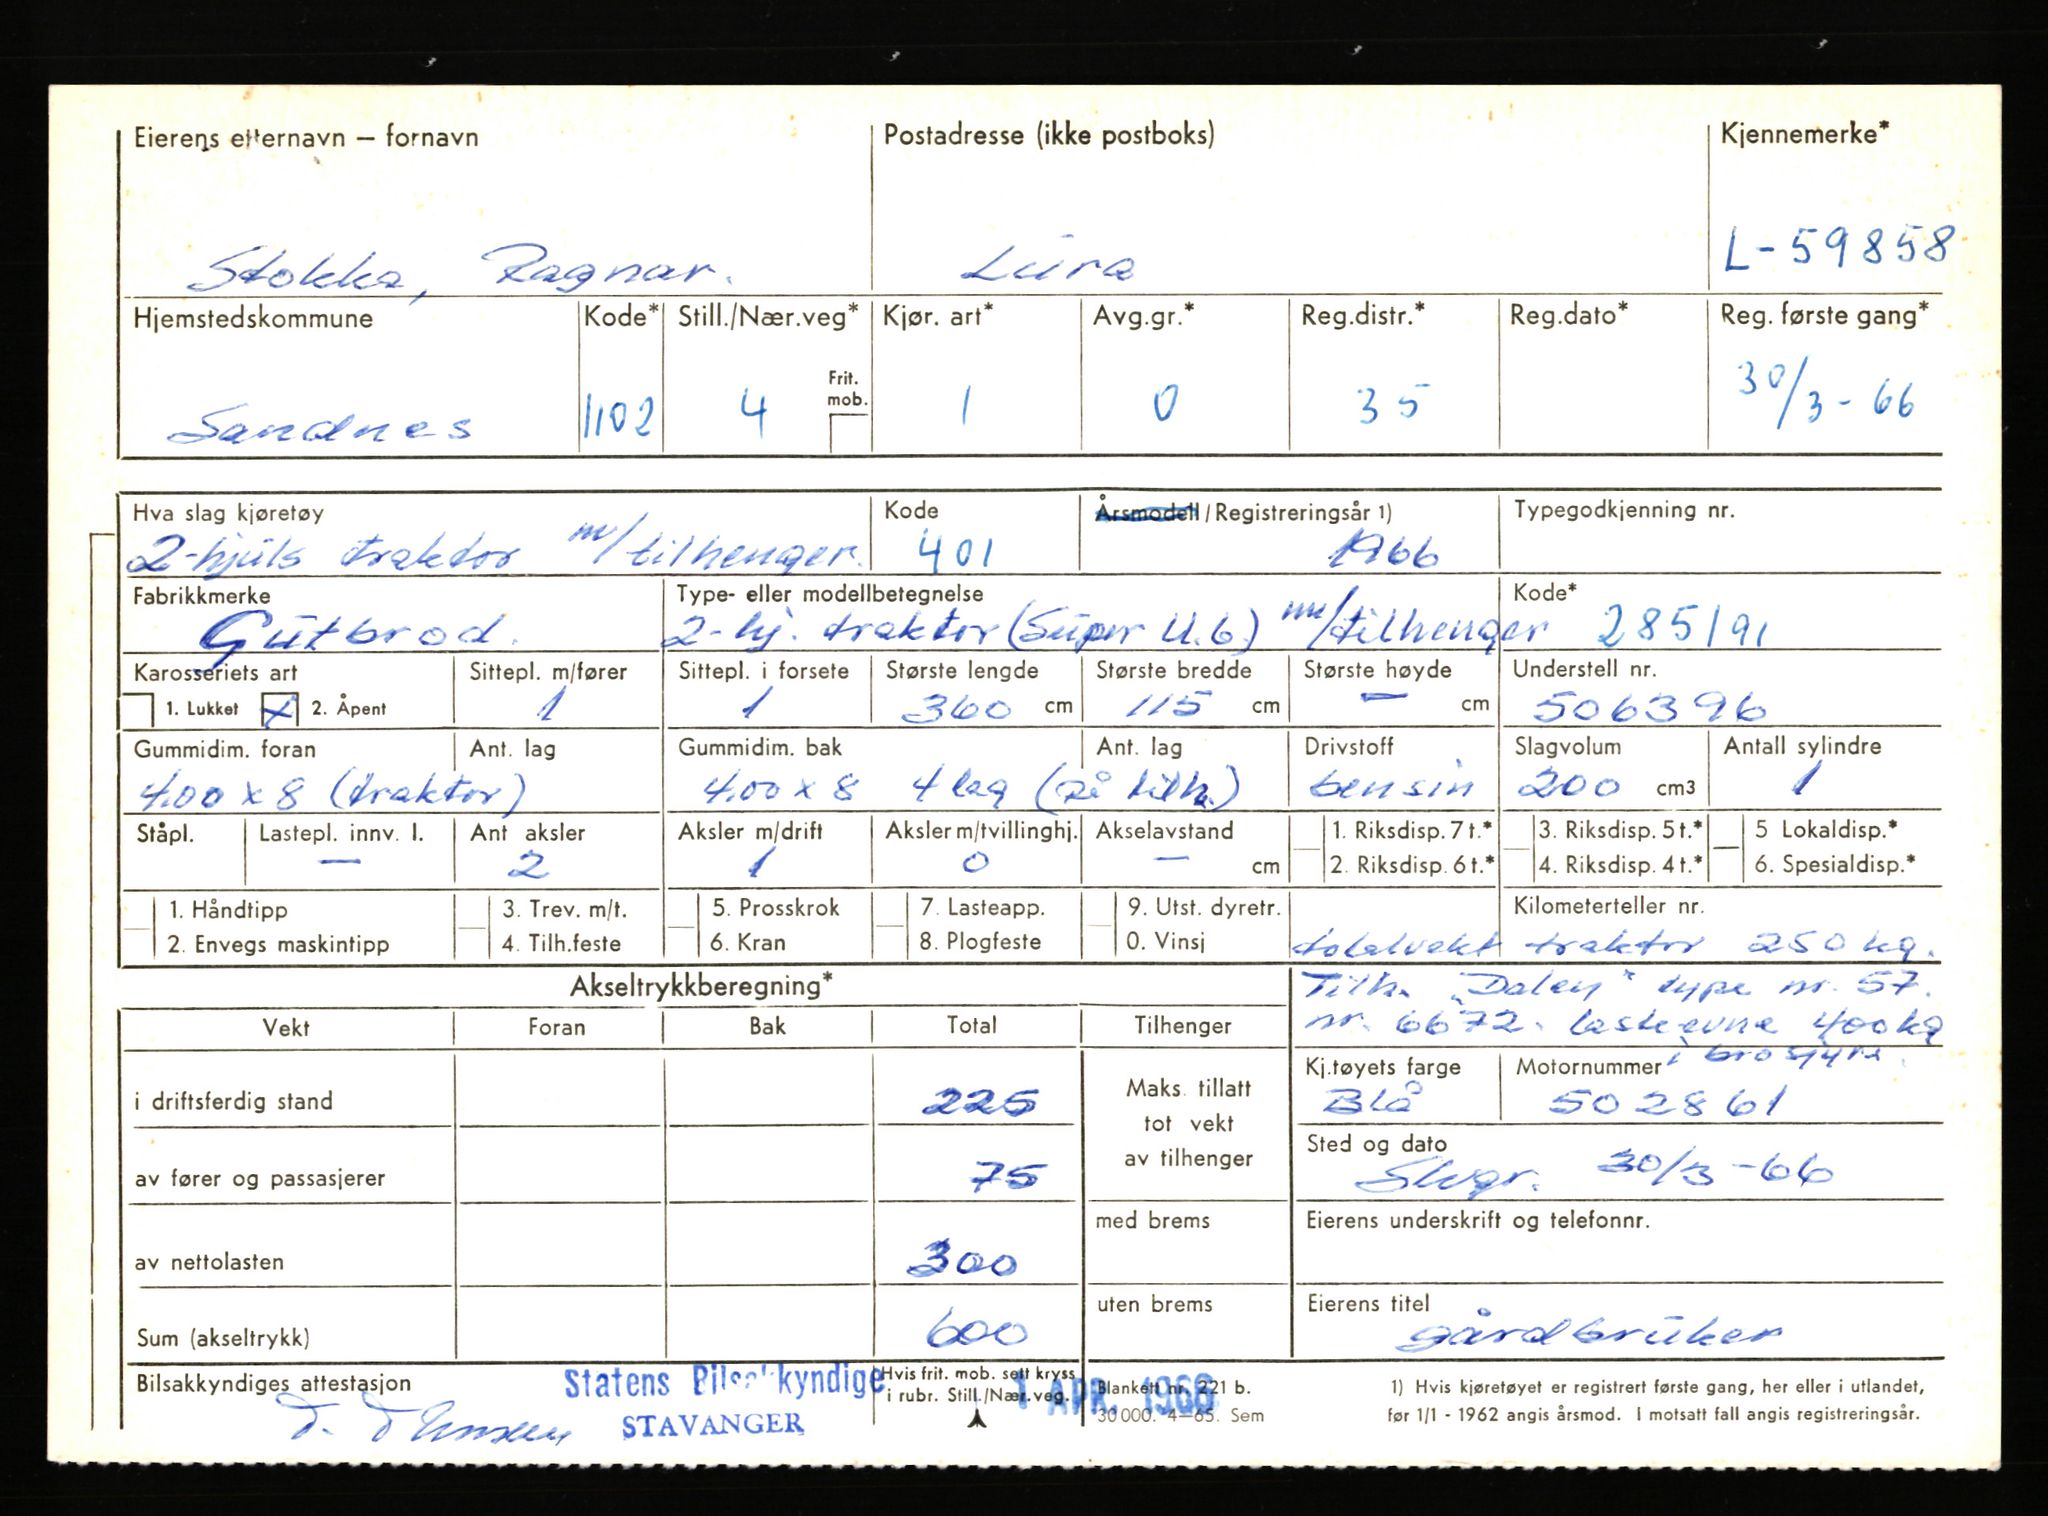 Eierens etternavn – fornavn Postadresse (ikke postboks) Kjennemerke*
Stokka, Ragnar. Lura L-59858
Hjemstedskommune Kode* Still./Nær.veg* Kjør. art* Avg.gr.* Reg.distr.* Reg.dato* Reg. første gang*
Frit. mob.
Sandnes 1102 4 1 0 35 30/3-66
Hva slag kjøretøy Kode Årsmodell/Registreringsår 1) Typegodkjenning nr.
2-hjuls traktor m/tilhenger. 401 1966
Fabrikkmerke Type- eller modellbetegnelse Kode*
Gutbrod. 2-hj. traktor (Super U.6) m/tilhenger 285191
Karosseriets art Sittepl. m/fører Sittepl. i forsete Største lengde Største bredde Største høyde Understell nr.
1. Lukket x 2. Åpent 1 1 360 cm 115 cm – cm 506396
Gummidim. foran Ant. lag Gummidim. bak Ant. lag Drivstoff Slagvolum Antall sylindre
4.00 x 8 (traktor) 4.00 x 8 4 lag (på tilh.) bensin 200 cm3 1
Ståpl. Lastepl. innv. l. Ant aksler Aksler m/drift Aksler m/tvillinghj. Akselavstand 1. Riksdisp. 7 t.* 3. Riksdisp. 5 t.* 5 Lokaldisp.*
– 2 1 0 – cm 2. Riksdisp. 6 t.* 4. Riksdisp. 4 t.* 6. Spesialdisp.*
1. Håndtipp 3. Trev. m/t. 5. Prosskrok 7. Lasteapp. 9. Utst. dyretr. Kilometerteller nr.
2. Envegs maskintipp 4. Tilh.feste 6. Kran 8. Plogfeste 0. Vinsj totalvekt traktor 250 kg.
Akseltrykkberegning* Tilh. "Dalen" type nr. 57.
Vekt Foran Bak Total Tilhenger nr. 6672. lasteevne 400 kg
i brosjyre.
Kj.tøyets farge Motornummer
i driftsferdig stand 225 Maks. tillatt tot vekt av tilhenger Blå 502861
Sted og dato
av fører og passasjerer 75 Svgr. 30/3-66
med brems Eierens underskrift og telefonnr.
av nettolasten 300
uten brems Eierens titel
Sum (akseltrykk) 600 gårdbruker
Bilsakkyndiges attestasjon Statens Bilsakkyndige Hvis frit. mob. sett kryss i rubr. Still./Nær.veg. 1 APR. 1966 Blankett nr. 221 b. 1) Hvis kjøretøyet er registrert første gang, her eller i utlandet,
STAVANGER 30 000. 4–65. Sem før 1/1 - 1962 angis årsmod. I motsatt fall angis registreringsår.